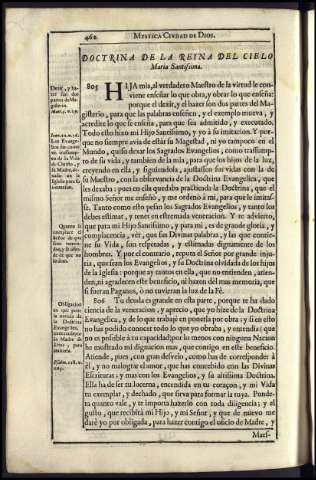 462 MYSTICA CIUDAD DE DIOS.
DOCTRINA DE LA REINA DEL CIELO
Maria Santissima.
805 HIJA mia, el verdadero Maestro de la virtud le con-
viene enseñar lo que obra, y obrar lo que enseña:
porque el dezir, y el hazer son dos partes del Ma-
gisterio, para que las palabras enseñen, y el exemplo mueva, y
acredite lo que se enseña, para que sea admitido, y executado.
Todo esto hizo mi Hijo Santissimo, y yo à su imitacion. Y por-
que no siempre avia de estar su Magestad, ni yo tampoco en el
Mundo, quiso dexar los Sagrados Evangelios, como trassump-
to de su vida, y tambien de la mia, para que los hijos de la luz,
creyendo en ella, y siguiendola, ajustassen sus vidas con la de
su Maestro, con la observancia de la Doctrina Evangelica, que
les dexaba: pues en ella quedaba practicada la Doctrina, que el
mismo Señor me enseñò, y me ordenò à mi, para que le imitas-
se. Tanto como esto pesan los Sagrados Evangelios, y tanto los
debes estimar, y tener en estremada veneracion. Y te advierto,
que para mi Hijo Santissimo, y para mi, es de grande gloria, y
complacencia, vèr, que sus Divinas palabras, y las que contie-
ne su Vida, son respetadas, y estimadas dignamente de los
hombres. Y por el contrario, reputa el Señor por grande inju-
ria, que sean los Evangelios, y su Doctrina olvidada de los hijos
de la Iglesia: porque ay tantos en ella, que no entienden, atien-
den, ni agradecen este beneficio, ni hazen dèl mas memoria, que
si fueran Paganos, ò no tuvieran la luz de la Fè.
806 Tu deuda es grande en esta parte, porque te ha dado
ciencia de la veneracion, y aprecio, que yo hize de la Doctrina
Evangelica, y de lo que trabajè en ponerla por obra: y si en esto
no has podido conocer todo lo que yo obraba, y entendia (que
no es possible à tu capacidad) por lo menos con ninguna Nacion
he mostrado mi dignacion mas, que contigo en este beneficio.
Atiende, pues, con gran desvelo, como has de corresponder à
èl, y no malograr el amor, que has concebido con las Divinas
Escrituras, y mas con los Evangelios, y su altissima Doctrina.
Ella ha de ser tu lucerna, encendida en tu coraçon, y mi Vida
tu exemplar, y dechado, que sirva para formar la tuya. Ponde-
ra quanto vale, y te importa hazerlo con toda diligencia; y el
gusto, que recibirà mi Hijo, y mi Señor, y que de nuevo me
darè yo por obligada, para hazer contigo el oficio de Madre, y
Maes-
Dezir, y ha-
zer son dos
partes de Ma-
gisterio.
Los Evange-
de la Vida
de Christo, y
su Madre,